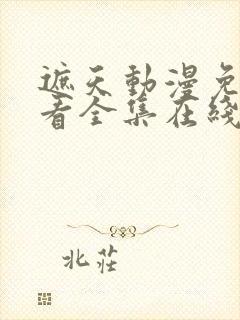 遮天動漫免
看全集在綫
北莊